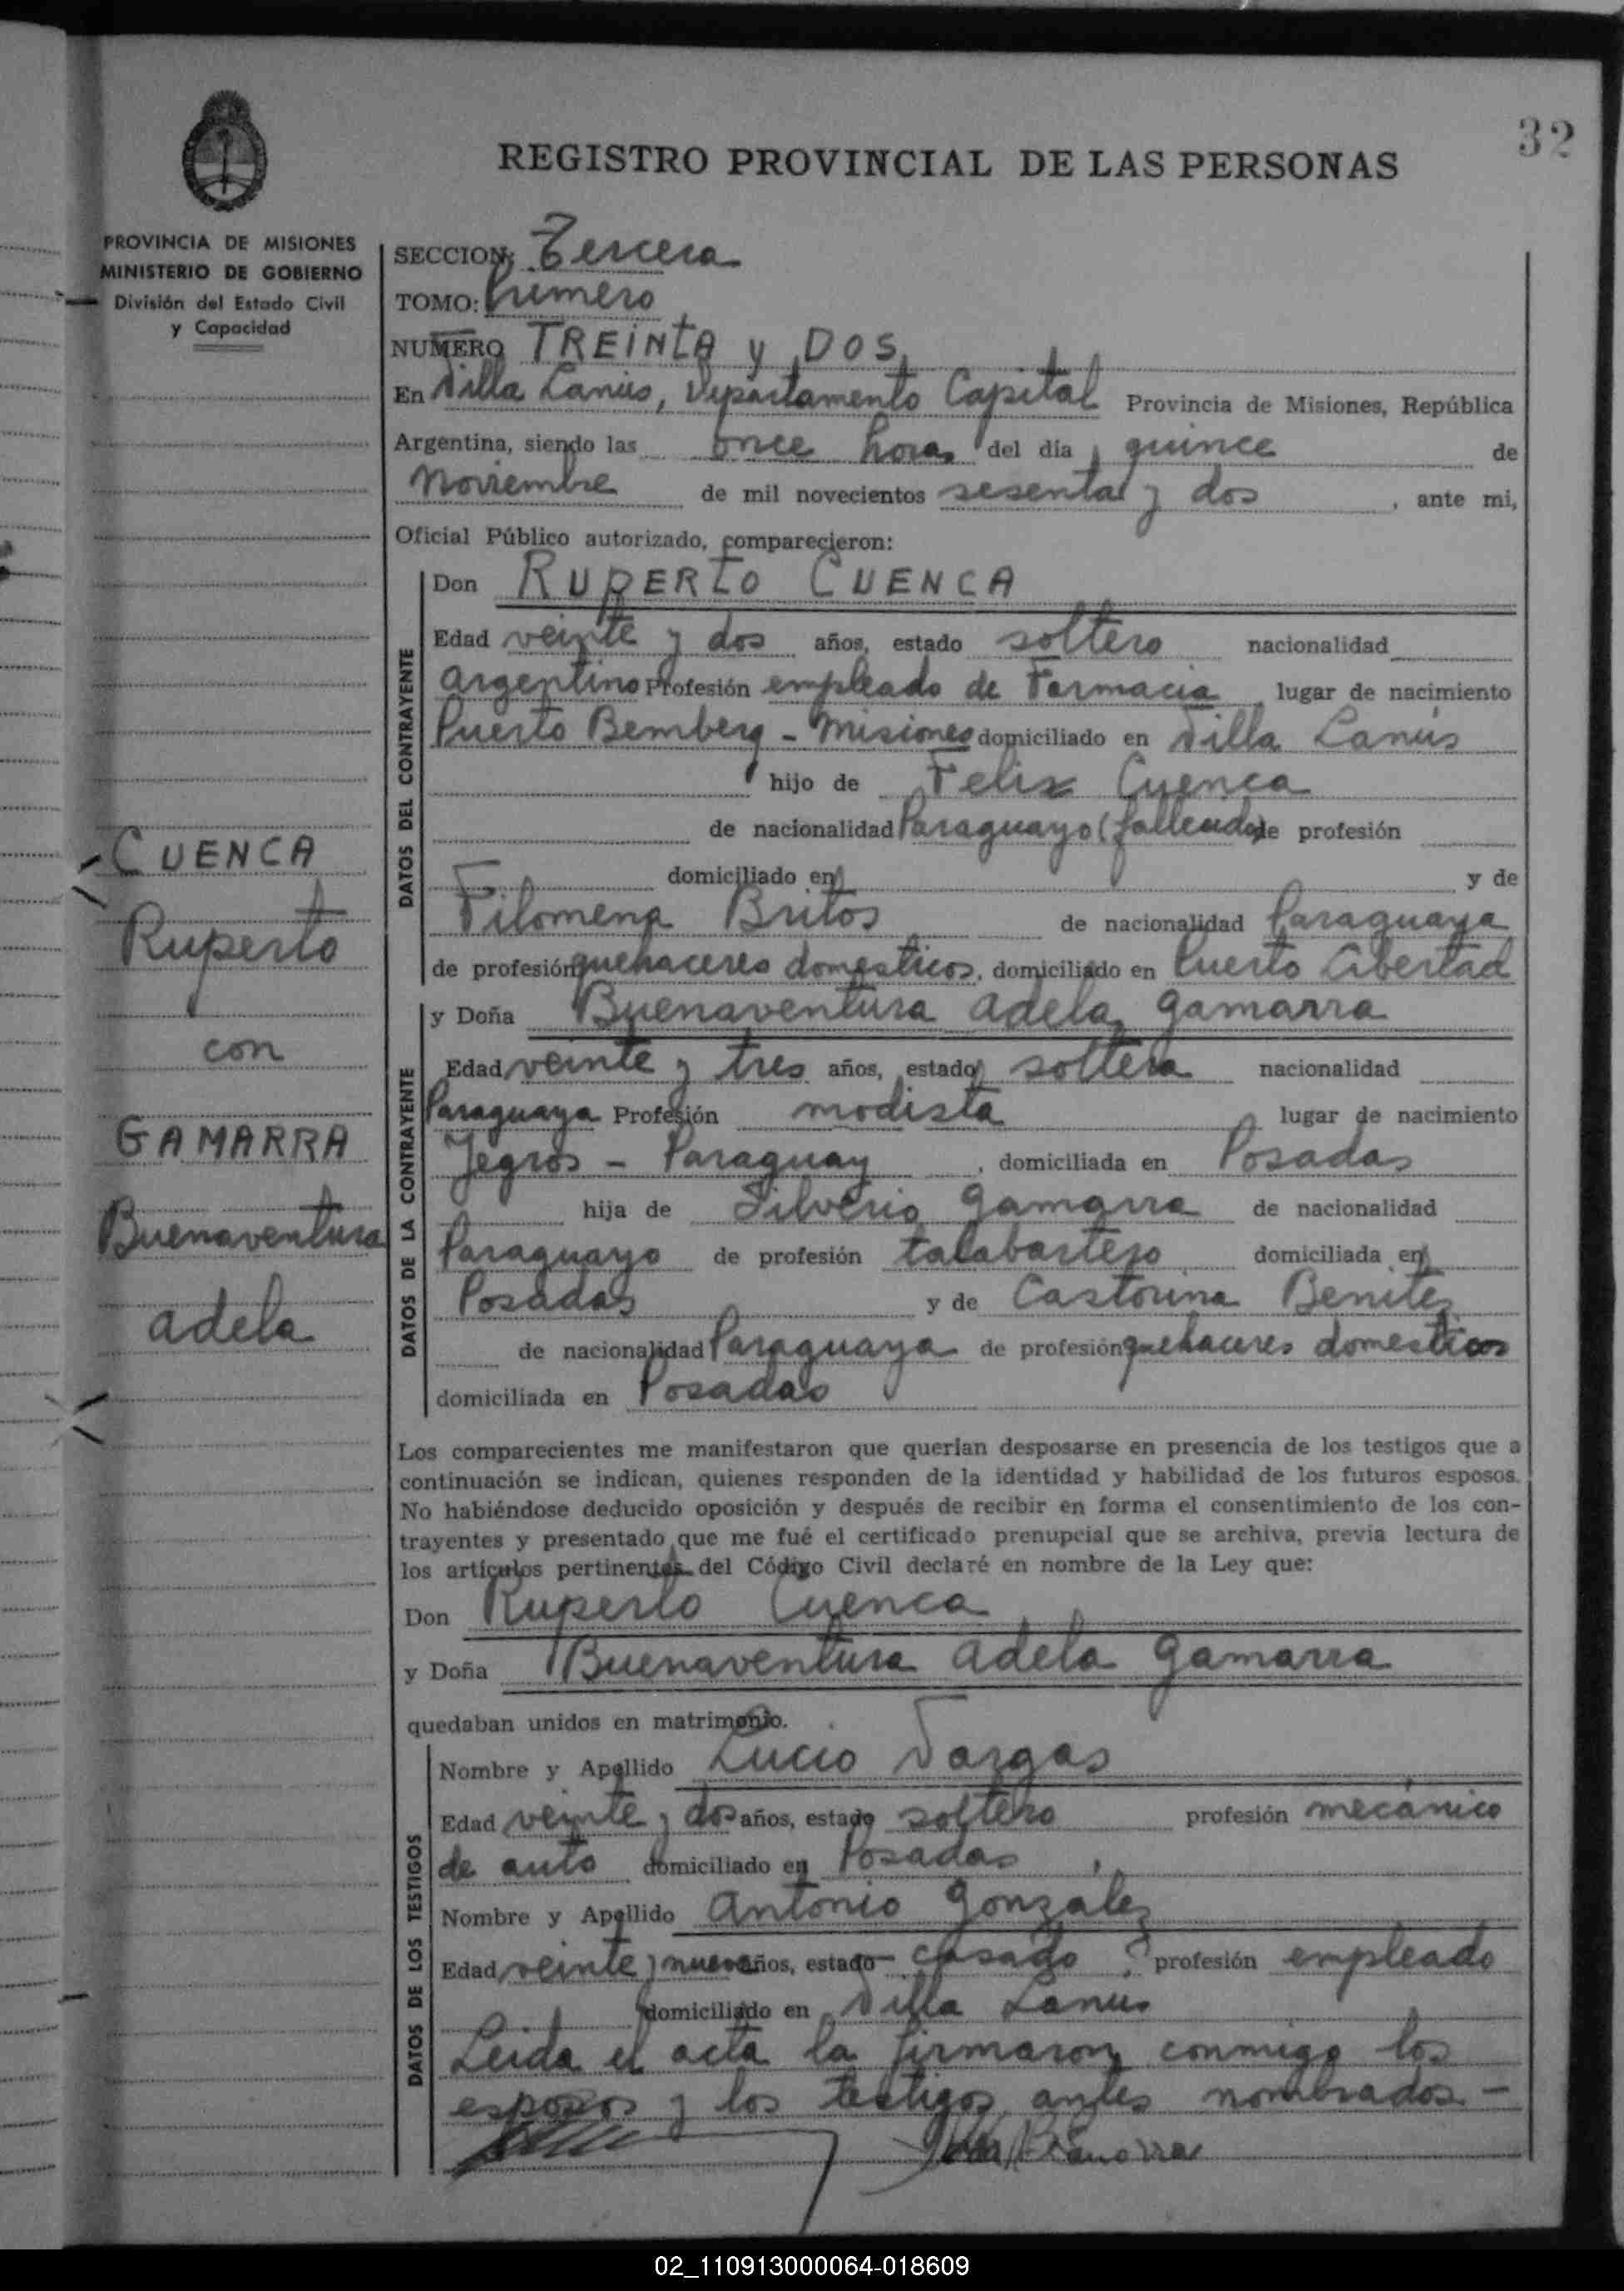 32
REGISTRO PROVINCIAL DE LAS PERSONAS
PROVINCIA DE MISIONES
MINISTERIO DE GOBIERNO
División del Estado Civil
y Capacidad
CUENCA
Ruperto
con
GAMARRA
Buenaventura
Adela
SECCION: Tercera
TOMO: Primero
NUMERO TREINTA y DOS
En Villa Lanús, Departamento Capital Provincia de Misiones, República
Argentina, siendo las once horas del día quince de
Noviembre de mil novecientos sesenta y dos, ante mi,
Oficial Público autorizado, comparecieron:
DATOS DEL CONTRAYENTE
Don RUPERTO CUENCA
Edad veinte y dos años, estado soltero nacionalidad
Argentino Profesión empleado de Farmacia lugar de nacimiento
Puerto Bemberg - Misiones domiciliado en Villa Lanús
hijo de Felix Cuenca
de nacionalidad Paraguayo (fallecido) de profesión
domiciliado en y de
Filomena Britos de nacionalidad Paraguaya
de profesión quehaceres domesticos, domiciliado en Puerto Libertad
DATOS DE LA CONTRAYENTE
y Doña Buenaventura Adela Gamarra
Edad veinte y tres años, estado soltera nacionalidad
Paraguaya Profesión modista lugar de nacimiento
Yegros - Paraguay, domiciliada en Posadas
hija de Silverio Gamarra de nacionalidad
Paraguayo de profesión talabartero domiciliada en
Posadas y de Castorina Benitez
de nacionalidad Paraguaya de profesión quehaceres domesticos
domiciliada en Posadas
Los comparecientes me manifestaron que querían desposarse en presencia de los testigos que a
continuación se indican, quienes responden de la identidad y habilidad de los futuros esposos.
No habiéndose deducido oposición y después de recibir en forma el consentimiento de los con-
trayentes y presentado que me fué el certificado prenupcial que se archiva, previa lectura de
los artículos pertinentes del Código Civil declaré en nombre de la Ley que:
Don Ruperto Cuenca
y Doña Buenaventura Adela Gamarra
quedaban unidos en matrimonio.
DATOS DE LOS TESTIGOS
Nombre y Apellido Lucio Vargas
Edad veinte y dos años, estado soltero profesión mecánico
de auto domiciliado en Posadas,
Nombre y Apellido Antonio Gonzalez
Edad veinte y nueve años, estado casado, profesión empleado
domiciliado en Villa Lanus
Leida el acta la firmaron conmigo los
esposos y los testigos antes nombrados -
02_110913000064-018609